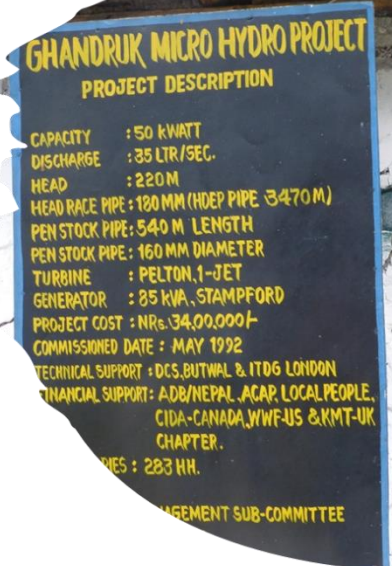 GHANDRUK MICRO HYDRO PROJECT
PROJECT DESCRIPTION
CAPACITY : 50 KWATT
DISCHARGE : 35 LTR/SEC.
HEAD : 220 M
HEAD RACE PIPE : 180 MM (HDEP PIPE 3470 M)
PEN STOCK PIPE : 540 M LENGTH
PEN STOCK PIPE : 160 MM DIAMETER
TURBINE : PELTON, 1-JET
GENERATOR : 85 KVA, STAMPFORD
PROJECT COST : NRs. 34,00,000/-
COMMISSIONED DATE : MAY 1992
TECHNICAL SUPPORT : DCS, BUTWAL & ITDG LONDON
FINANCIAL SUPPORT : ADB/NEPAL, ACAP, LOCAL PEOPLE,
CIDA-CANADA, WWF-US & KMT-UK
CHAPTER.
RIES : 283 HH.
AGEMENT SUB-COMMITTEE